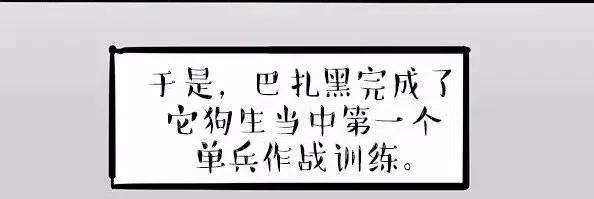 于是，巴扎黑完成了
它狗生当中第一个
单兵作战训练。